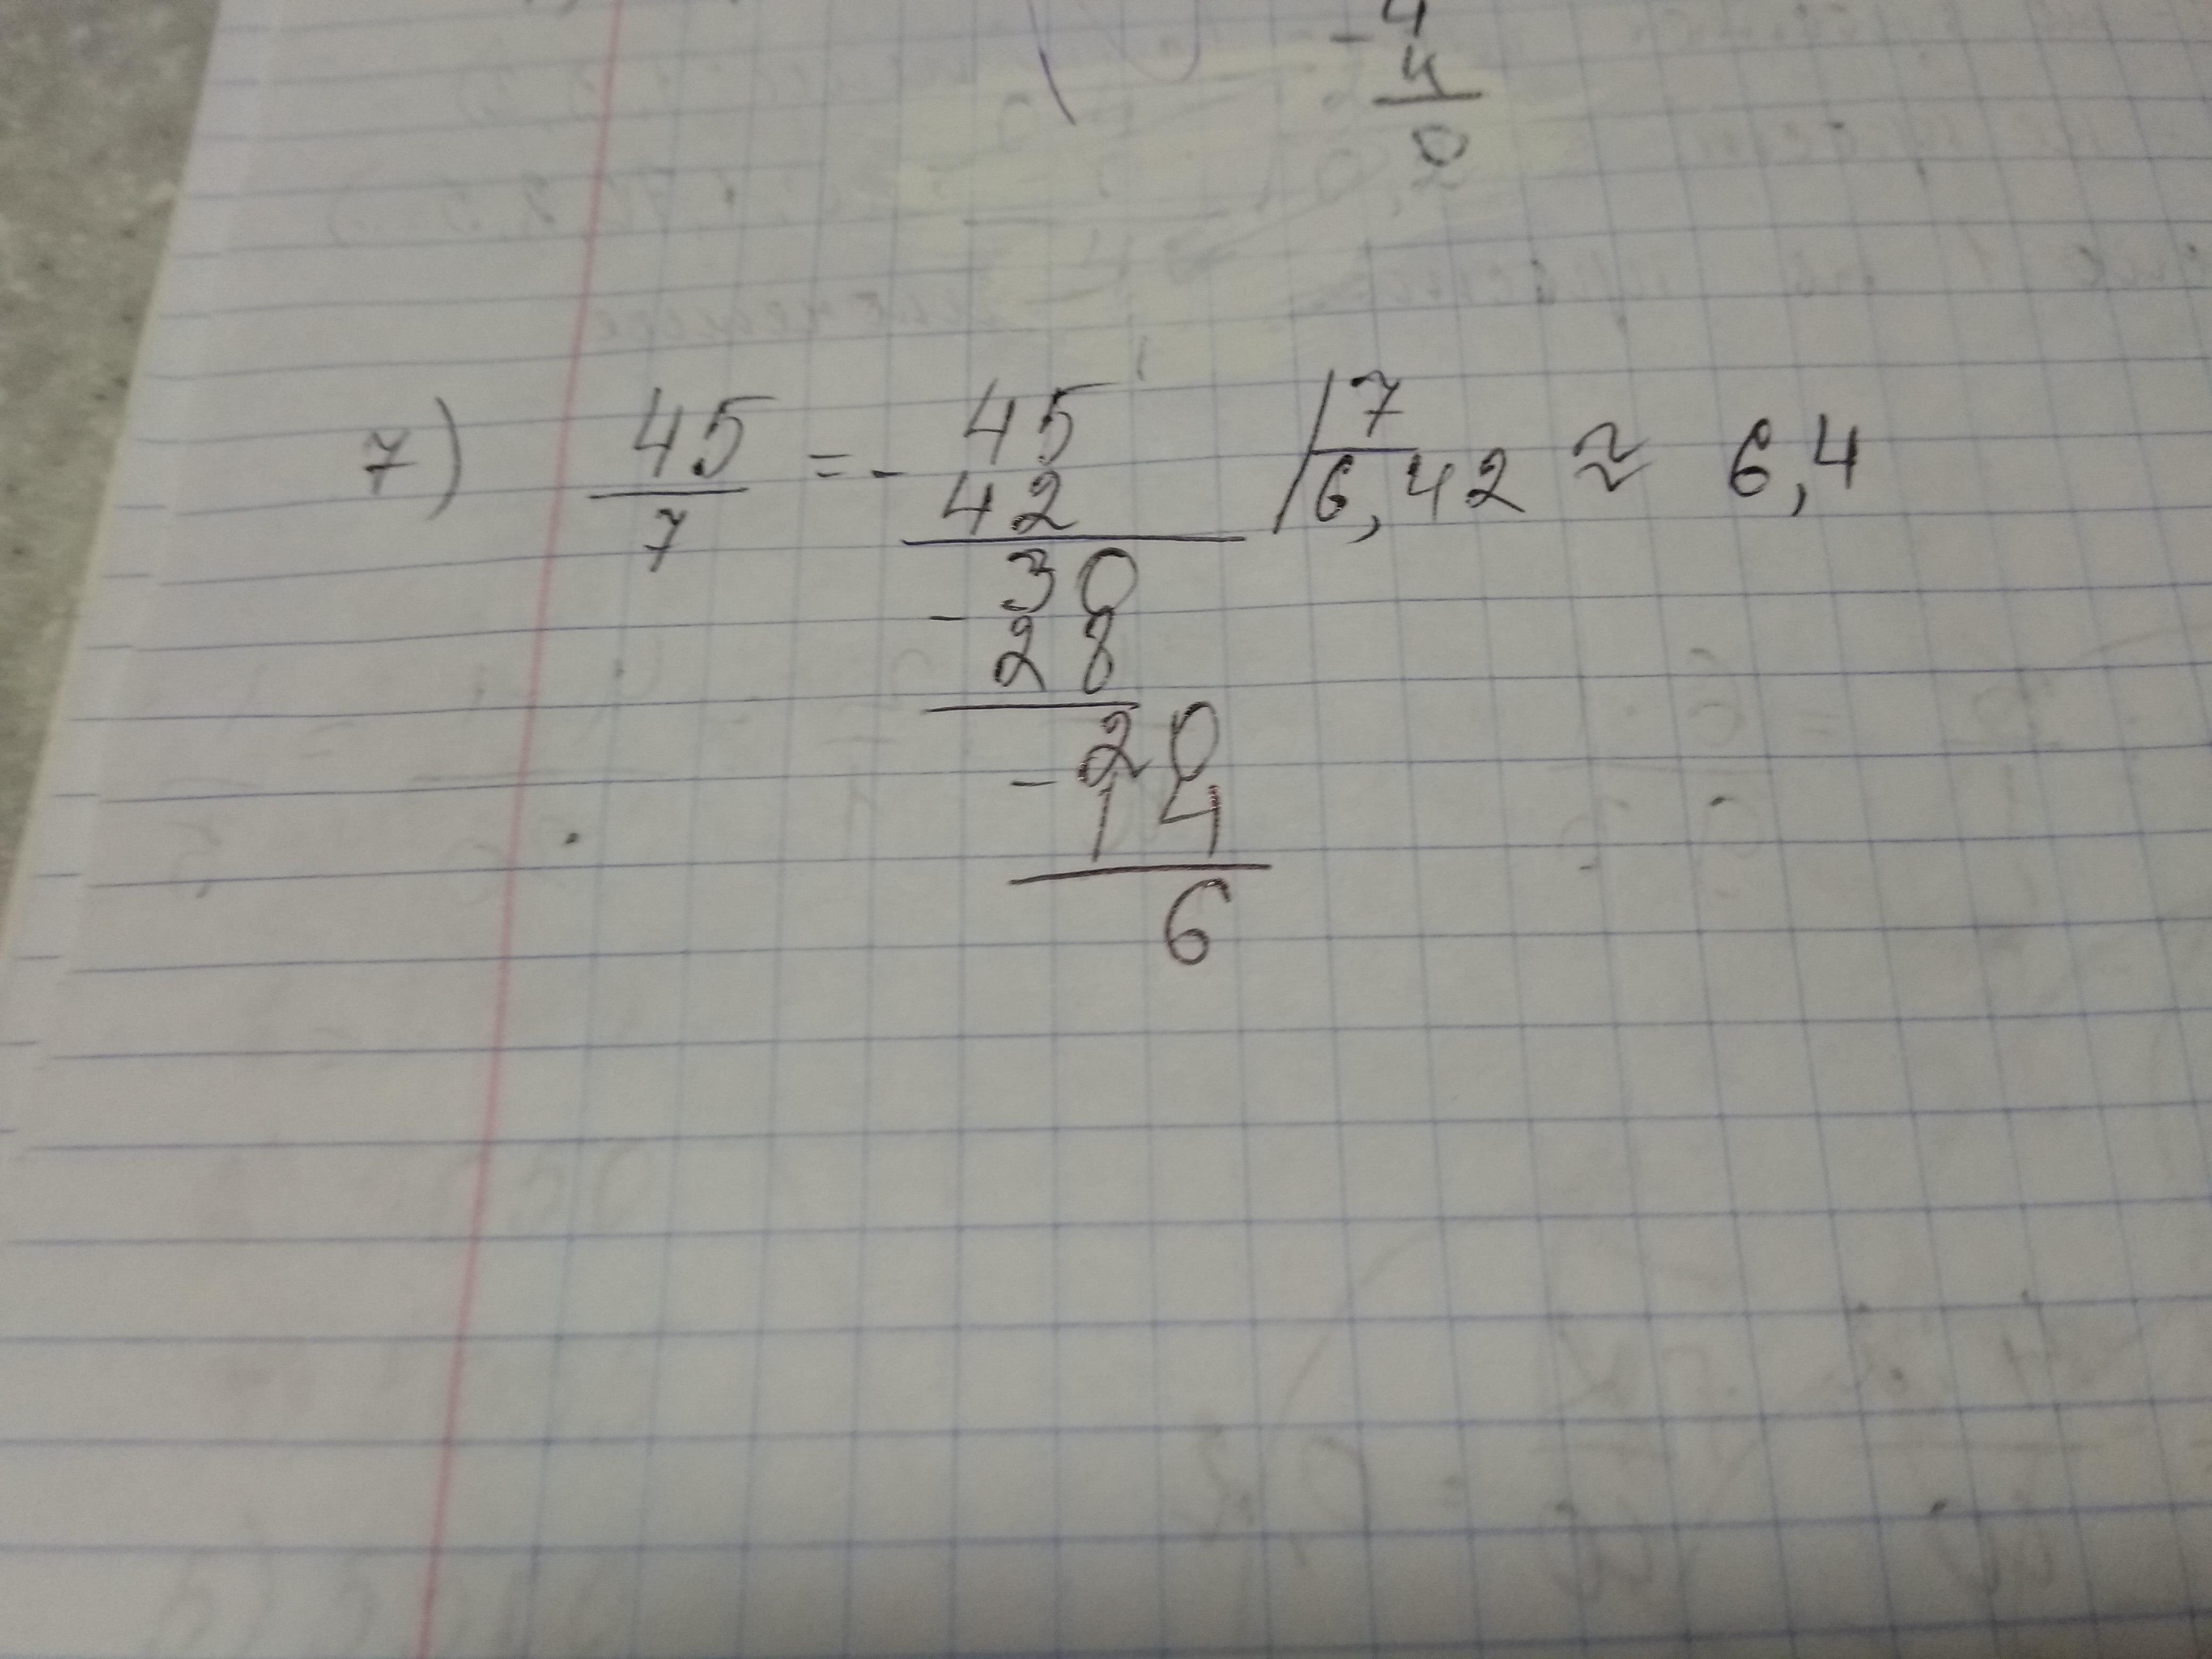 - 4
4
0
7) 45/7 = - 45 | 7
42 6,42 ≈ 6,4
- 30
28
- 20
14
6